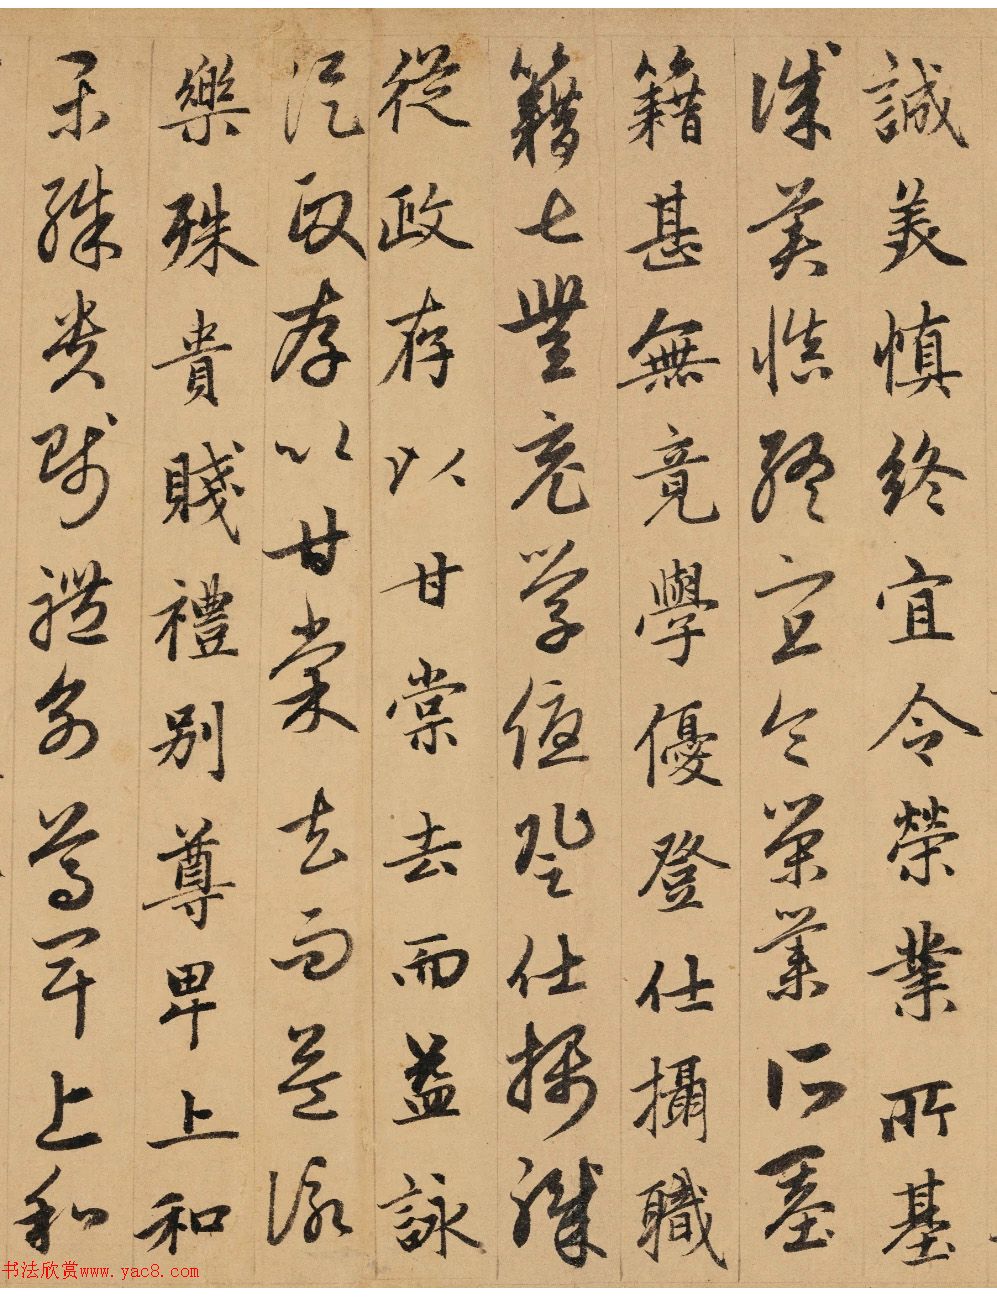 誠美慎終宜令榮業所基
誠美慎終宜令榮業所基
籍甚無竟學優登仕攝職
籍甚無竟學優登仕攝職
從政存以甘棠去而益詠
從政存以甘棠去而益詠
樂殊貴賤禮別尊卑上和
樂殊貴賤禮別尊卑上和
书法欣赏www.yac8.com